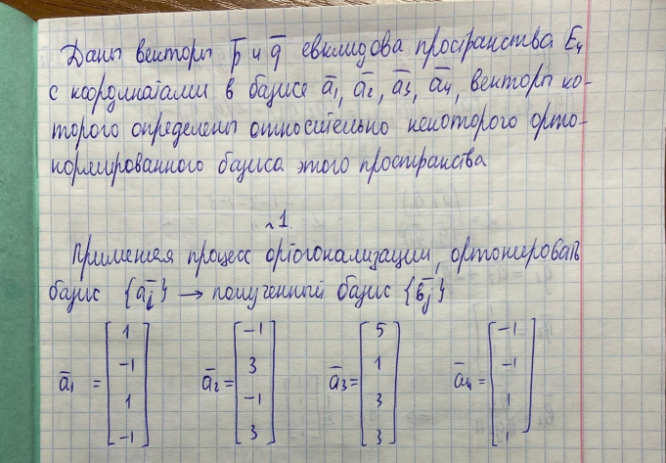 Даны векторы p̅ и q̅ евклидова пространства E₄
с координатами в базисе a̅₁, a̅₂, a̅₃, a̅₄, векторы ко-
торого определены относительно некоторого орто-
нормированного базиса этого пространства
~1.
Применяя процесс ортогонализации, ортонировать
базис {a̅ᵢ} → полученный базис {b̅ⱼ}
a̅₁ = [1 -1 1 -1] a̅₂ = [-1 3 -1 3] a̅₃ = [5 1 3 3] a̅₄ = [-1 -1 1 1]